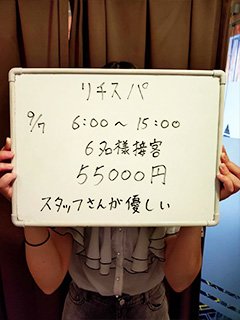 リチスパ
9/7 6:00～15:00
6名様接客
55000円
スタッフさんが優しい